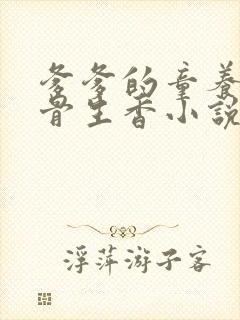 爹爹的童養
骨生香小說
浮萍游子客